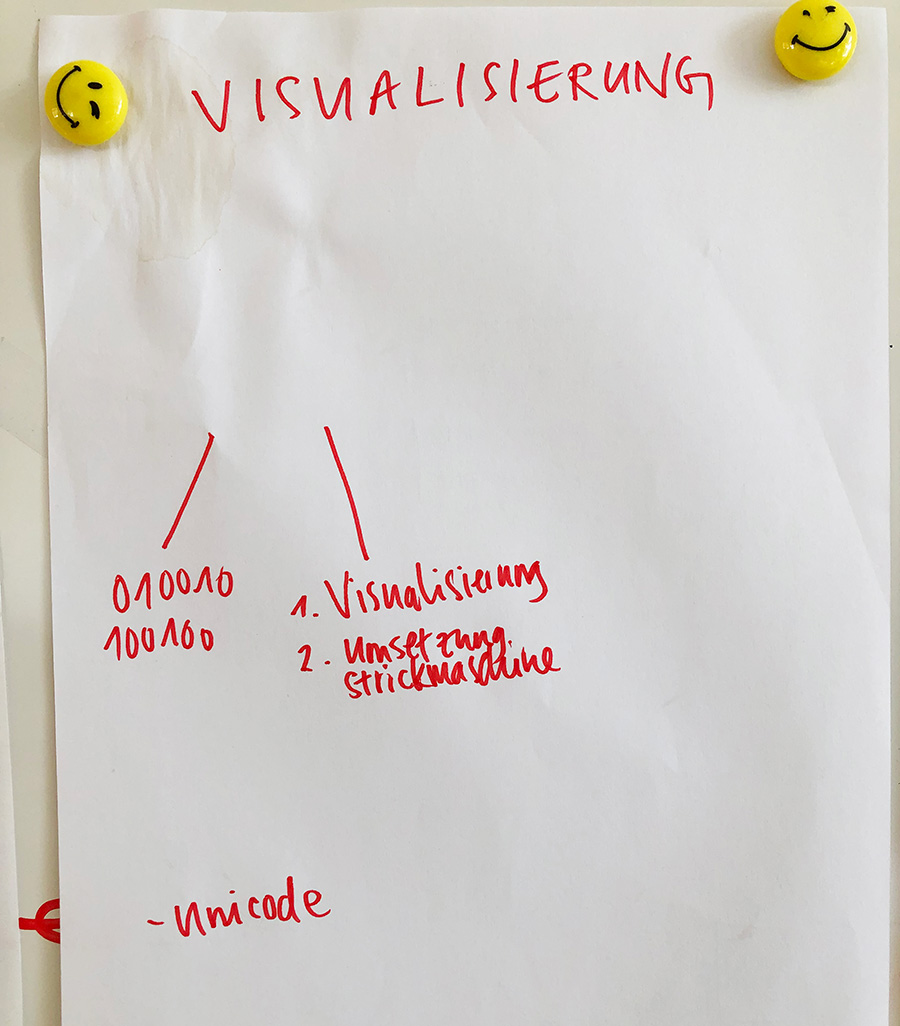 VISUALISIERUNG
010010
100100
1. Visualisierung
2. Umsetzung
strickmaschine
- unicode